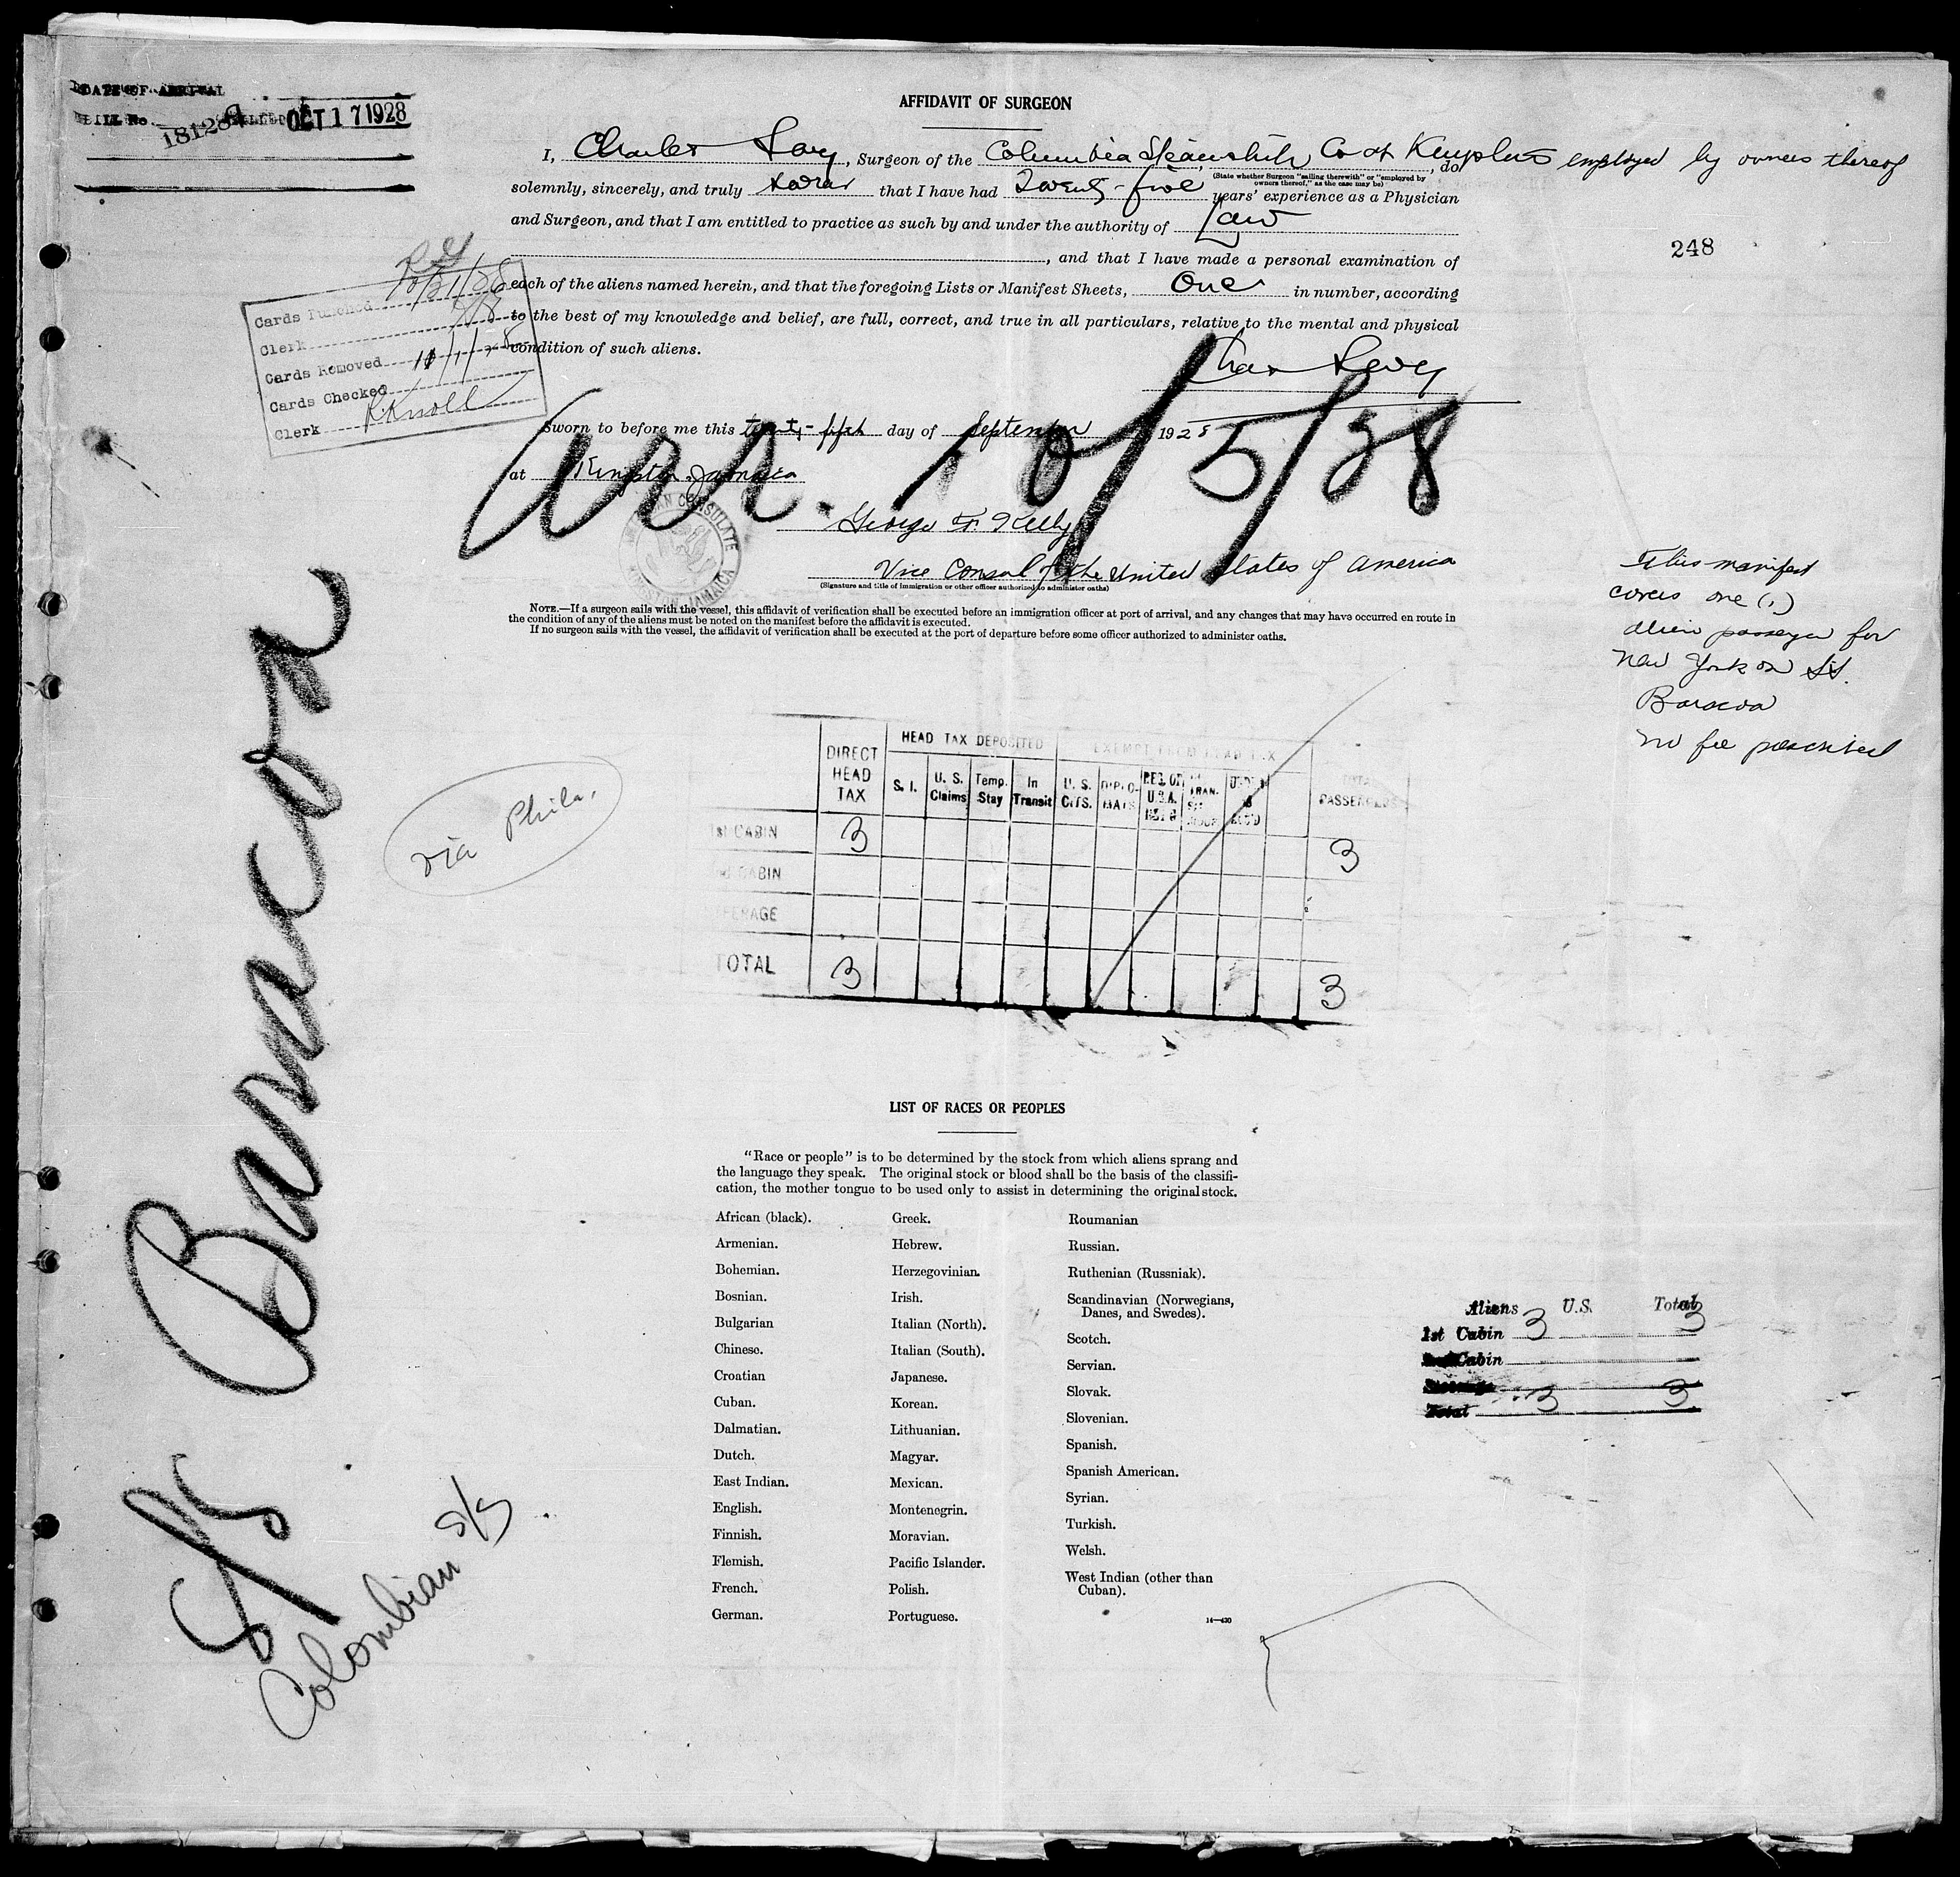 DATE OF ARRIVAL
BILL No. 181284 BILLED OCT 17 1928
AFFIDAVIT OF SURGEON
I, Charles Levy, Surgeon of the Columbia Steamship Co at Kingston employed by owners thereof, do
(State whether Surgeon "sailing therewith" or "employed by owners thereof," as the case may be)
solemnly, sincerely, and truly swear that I have had Twenty-five years' experience as a Physician
and Surgeon, and that I am entitled to practice as such by and under the authority of Law
, and that I have made a personal examination of
248
each of the aliens named herein, and that the foregoing Lists or Manifest Sheets, One in number, according
to the best of my knowledge and belief, are full, correct, and true in all particulars, relative to the mental and physical
condition of such aliens.
Cards Punched
Clerk
Cards Removed 11/1/28
Cards Checked
Clerk K. Knoll
Chas Levy
Sworn to before me this twenty-fifth day of September 1928
at Kingston Jamaica
arr. 10/5/28
AMERICAN CONSULATE
KINGSTON, JAMAICA
George F. Kelly
Vice Consul of the United States of America
(Signature and title of immigration or other officer authorized to administer oaths)
NOTE.—If a surgeon sails with the vessel, this affidavit of verification shall be executed before an immigration officer at port of arrival, and any changes that may have occurred en route in
the condition of any of the aliens must be noted on the manifest before the affidavit is executed.
If no surgeon sails with the vessel, the affidavit of verification shall be executed at the port of departure before some officer authorized to administer oaths.
This manifest
covers one (1)
alien passenger for
New York on SS.
Baracoa
no fee prescribed
via Phila.
DIRECT HEAD TAX
HEAD TAX DEPOSITED
EXEMPT FROM HEAD TAX
S. I.
U. S. Claims
Temp. Stay
In Transit
U. S. CITS.
DIPLO-MATS
PASSENGERS
1st CABIN 3 3
2nd CABIN
STEERAGE
TOTAL 3 3
S/S Baracoa
Colombian S/S
LIST OF RACES OR PEOPLES
"Race or people" is to be determined by the stock from which aliens sprang and
the language they speak. The original stock or blood shall be the basis of the classifi-
cation, the mother tongue to be used only to assist in determining the original stock.
African (black).
Armenian.
Bohemian.
Bosnian.
Bulgarian
Chinese.
Croatian
Cuban.
Dalmatian.
Dutch.
East Indian.
English.
Finnish.
Flemish.
French.
German.
Greek.
Hebrew.
Herzegovinian.
Irish.
Italian (North).
Italian (South).
Japanese.
Korean.
Lithuanian.
Magyar.
Mexican.
Montenegrin.
Moravian.
Pacific Islander.
Polish.
Portuguese.
Roumanian
Russian.
Ruthenian (Russniak).
Scandinavian (Norwegians,
Danes, and Swedes).
Scotch.
Servian.
Slovak.
Slovenian.
Spanish.
Spanish American.
Syrian.
Turkish.
Welsh.
West Indian (other than
Cuban).
14—430
Aliens U.S. Total
1st Cabin 3 3
2nd Cabin
Steerage
Total 3 3